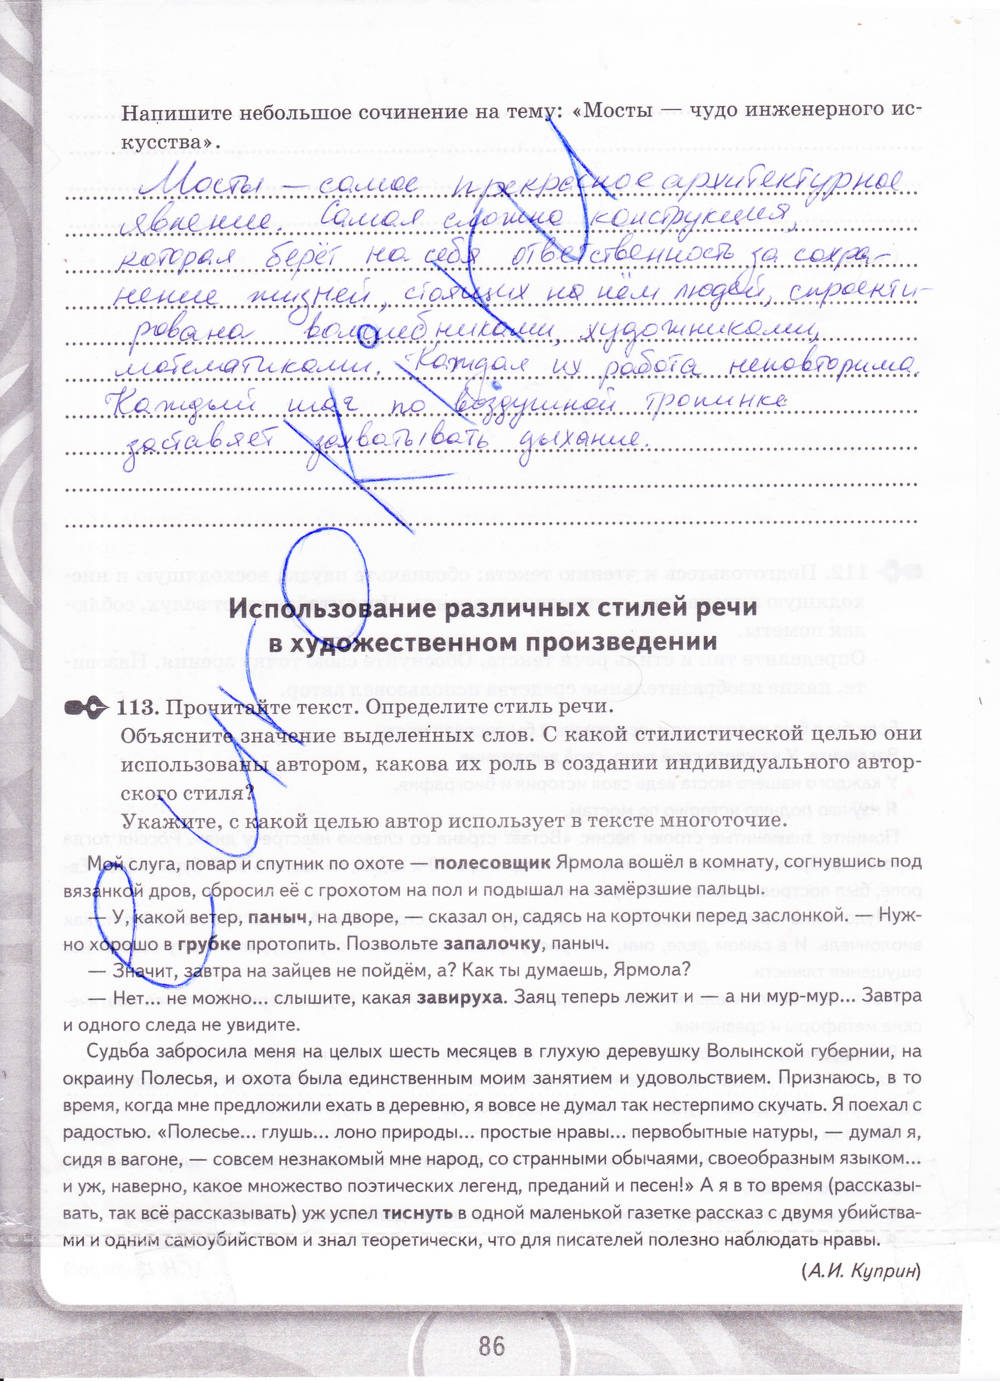 Напишите небольшое сочинение на тему: «Мосты — чудо инженерного ис-
кусства».
Мосты – самое прекрасное архитектурное
явление. Самая сложно конструкция,
которая берёт на себя ответственность за сохра-
нение жизней, стоящих на нём людей, спроекти-
рована волшебниками, художниками,
математиками. Каждая их работа неповторима.
Каждый шаг по воздушной тропинке
заставляет захватывать дыхание.
Использование различных стилей речи
в художественном произведении
113. Прочитайте текст. Определите стиль речи.
Объясните значение выделенных слов. С какой стилистической целью они
использованы автором, какова их роль в создании индивидуального автор-
ского стиля?
Укажите, с какой целью автор использует в тексте многоточие.
Мой слуга, повар и спутник по охоте — полесовщик Ярмола вошёл в комнату, согнувшись под
вязанкой дров, сбросил её с грохотом на пол и подышал на замёрзшие пальцы.
— У, какой ветер, паныч, на дворе, — сказал он, садясь на корточки перед заслонкой. — Нуж-
но хорошо в грубке протопить. Позвольте запалочку, паныч.
— Значит, завтра на зайцев не пойдём, а? Как ты думаешь, Ярмола?
— Нет... не можно... слышите, какая завируха. Заяц теперь лежит и — а ни мур-мур... Завтра
и одного следа не увидите.
Судьба забросила меня на целых шесть месяцев в глухую деревушку Волынской губернии, на
окраину Полесья, и охота была единственным моим занятием и удовольствием. Признаюсь, в то
время, когда мне предложили ехать в деревню, я вовсе не думал так нестерпимо скучать. Я поехал с
радостью. «Полесье... глушь... лоно природы... простые нравы... первобытные натуры, — думал я,
сидя в вагоне, — совсем незнакомый мне народ, со странными обычаями, своеобразным языком...
и уж, наверно, какое множество поэтических легенд, преданий и песен!» А я в то время (рассказы-
вать, так всё рассказывать) уж успел тиснуть в одной маленькой газетке рассказ с двумя убийства-
ми и одним самоубийством и знал теоретически, что для писателей полезно наблюдать нравы.
(А.И. Куприн)
86